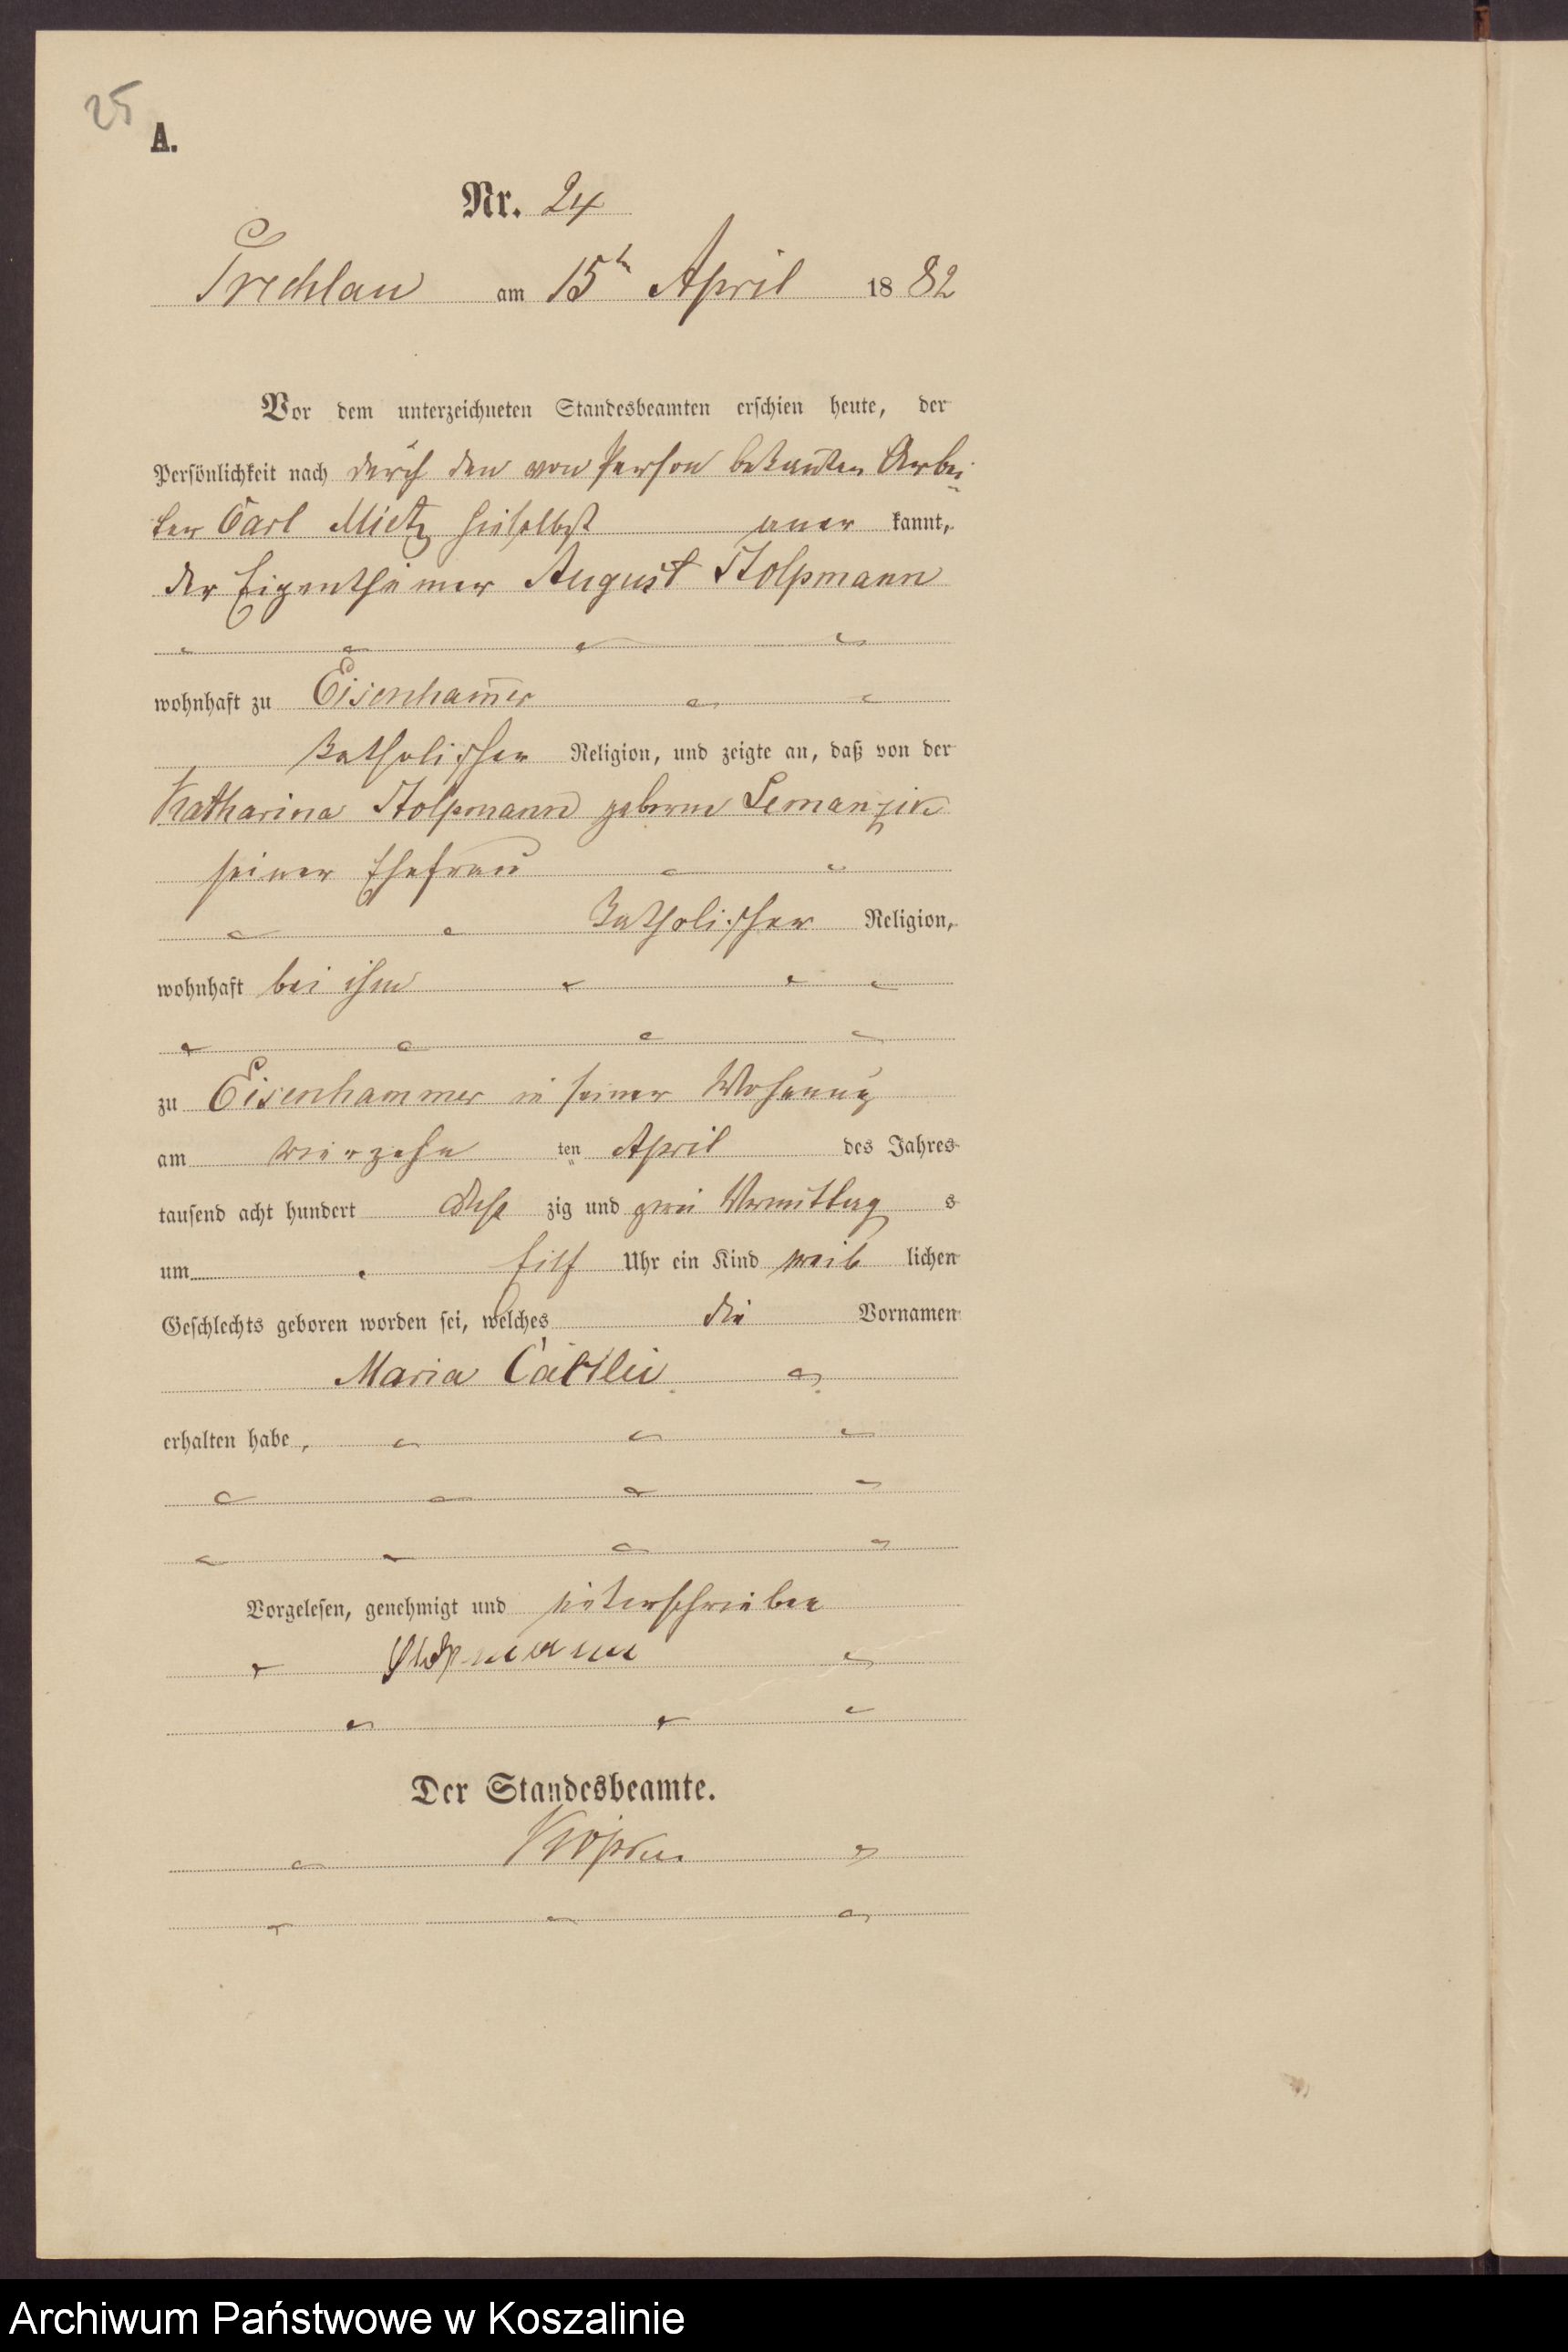 25
A.
Nr. 24
Prechlau am 15t April 1882
Vor dem unterzeichneten Standesbeamten erschien heute, der
Persönlichkeit nach durch den von Person bekan̄ten Arbei-
ter Carl Mietz hieselbst aner kannt,
der Eigenthümer August Stolpmann
wohnhaft zu Eisenham̄er
katholischer Religion, und zeigte an, daß von der
Katharina Stolpmann geborne Lemanzik
seiner Ehefrau
katholischer Religion,
wohnhaft bei ihm
zu Eisenhammer in seiner Wohnung
am vierzehn ten April des Jahres
tausend acht hundert acht zig und zwei Vormittag s
um Eilf Uhr ein Kind weib lichen
Geschlechts geboren worden sei, welches die Vornamen
Maria
erhalten habe,
Vorgelesen, genehmigt und unterschrieben
Stolpmann
Der Standesbeamte.
Archiwum Państwowe w Koszalinie